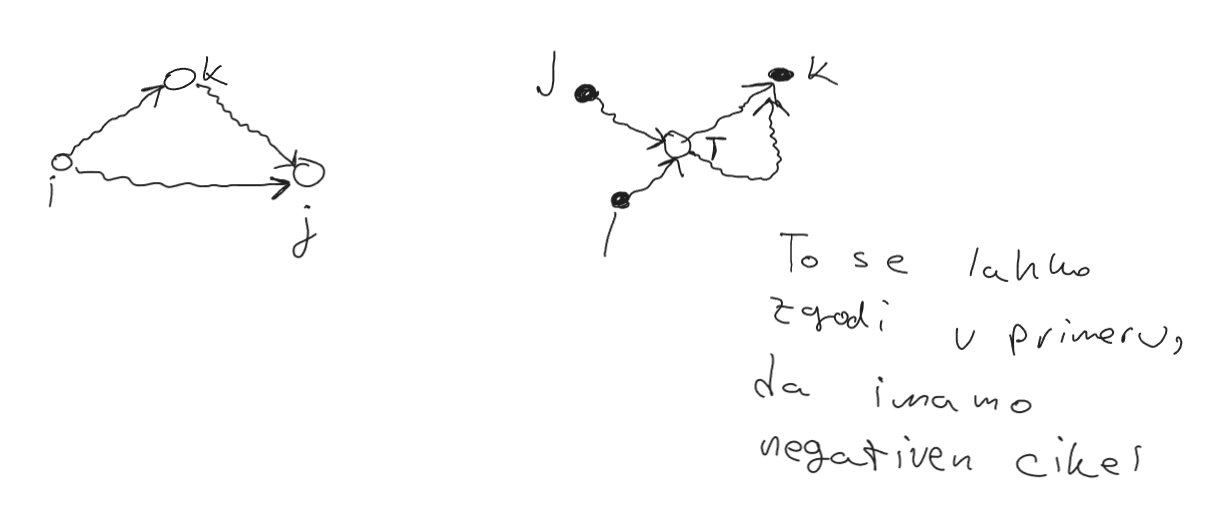 k
i
j
J
k
T
i
To se lahko
zgodi v primeru,
da imamo
negativen cikel